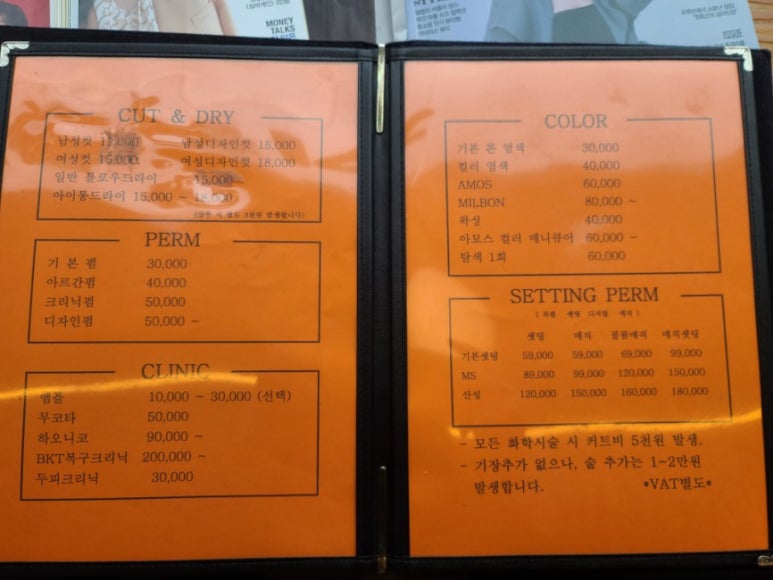 MONEY
TALKS
ISSUE
CUT & DRY
남성컷 12,000 남성디자인컷 15,000
여성컷 15,000 여성디자인컷 18,000
일반 블로우드라이 15,000~
아이롱드라이 15,000 ~ 18,000
(샴푸 시 별도 3천원 발생합니다)
PERM
기본펌 30,000
아르간펌 40,000
크리닉펌 50,000
디자인펌 50,000 ~
CLINIC
앰플 10,000 ~ 30,000 (선택)
무코타 50,000
하오니코 90,000 ~
BKT복구크리닉 200,000 ~
두피크리닉 30,000
COLOR
기본 톤 염색 30,000
컬러 염색 40,000
AMOS 60,000
MILBON 80,000 ~
왁싱 40,000
아모스 컬러 매니큐어 60,000 ~
탈색 1회 60,000
SETTING PERM
( 직펌 셋팅 디지털 매직 )
셋팅 매직 볼륨매직 매직셋팅
기본셋팅 59,000 59,000 69,000 99,000
MS 89,000 99,000 120,000 150,000
산성 120,000 150,000 160,000 180,000
- 모든 화학시술 시 커트비 5천원 발생.
- 기장추가 없으나, 숱 추가는 1~2만원
발생합니다. *VAT별도*